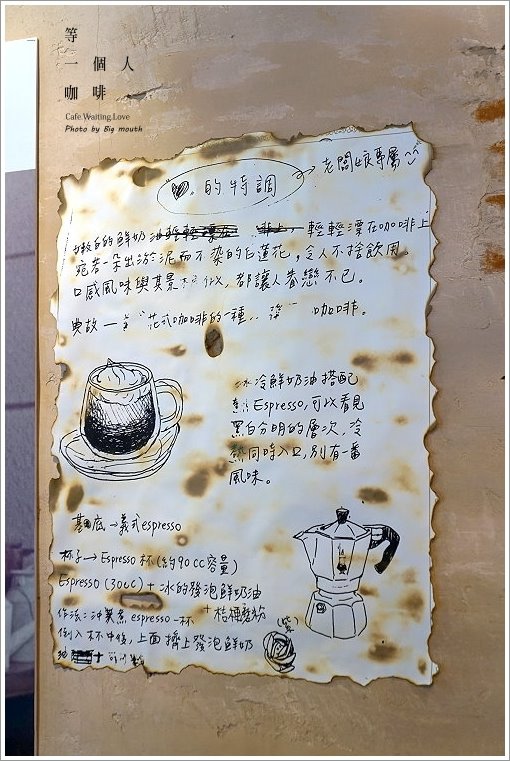 等
一個人
咖啡
Cafe.Waiting.Love
Photo by Big mouth
的特調
老闆娘專屬
白的鮮奶油 輕輕漂在咖啡上
宛若一朵出淤泥而不染的白蓮花,令人不捨飲用。
口感風味與其景 似,都讓人眷戀不已。
典故 花式咖啡的一種 咖啡。
冰冷鮮奶油搭配
Espresso,可以看見
黑白分明的層次,冷
熱同時入口,別有一番
風味。
基底→義式espresso
杯子→Espresso杯(約90cc容量)
Espresso(30cc)+冰的發泡鮮奶油
+桔梗 粉
作法:沖煮 espresso一杯
倒入杯中後,上面擠上發泡鮮奶
油
(紫)